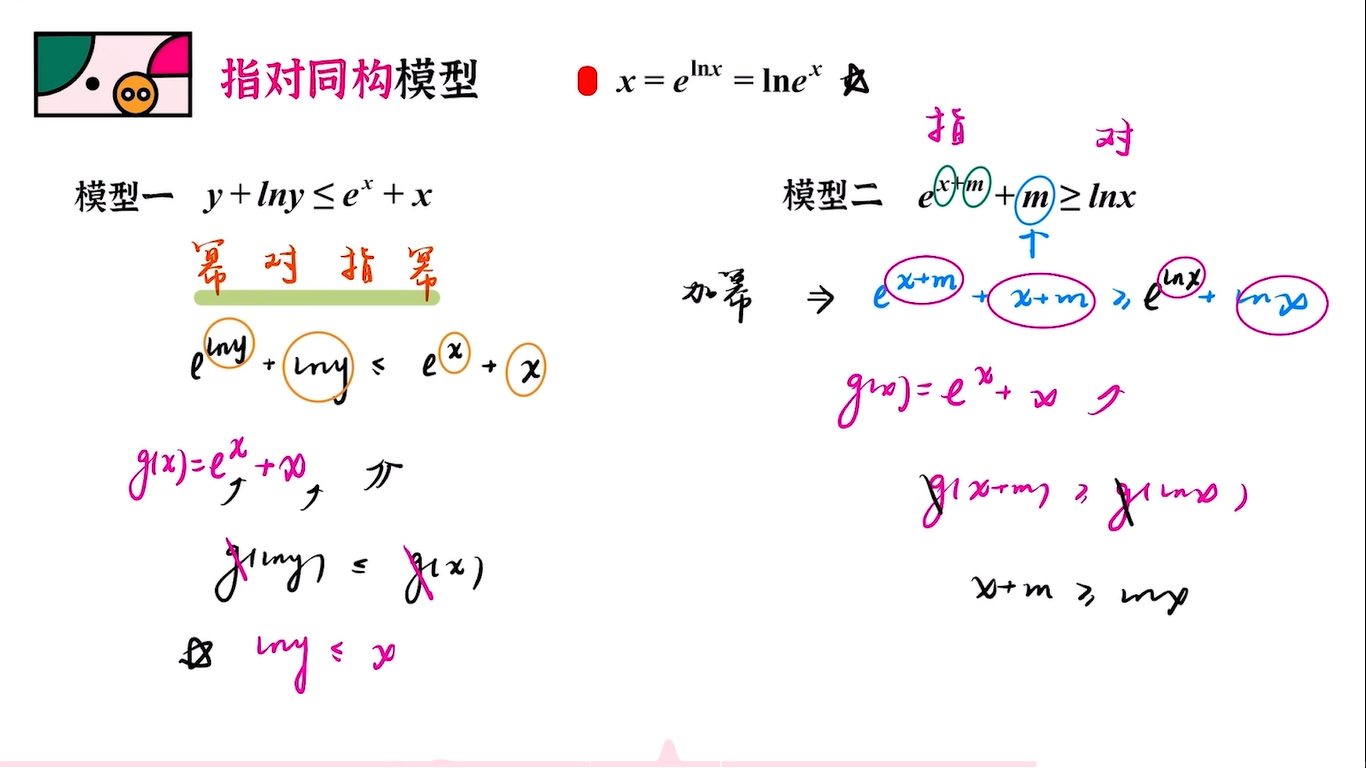 指对同构模型
x = e^{lnx} = lne^x ☆
模型一 y + lny ≤ e^x + x
幂 对 指 幂
e^{lny} + lny ≤ e^x + x
g(x)=e^x+x ↗
g(lny) ≤ g(x)
☆ lny ≤ x
指 对
模型二 e^{x+m} + m ≥ lnx
↑
加幂 ⇒ e^{x+m} + x+m ≥ e^{lnx} + lnx
g(x)=e^x+x ↗
g(x+m) ≥ g(lnx)
x+m ≥ lnx